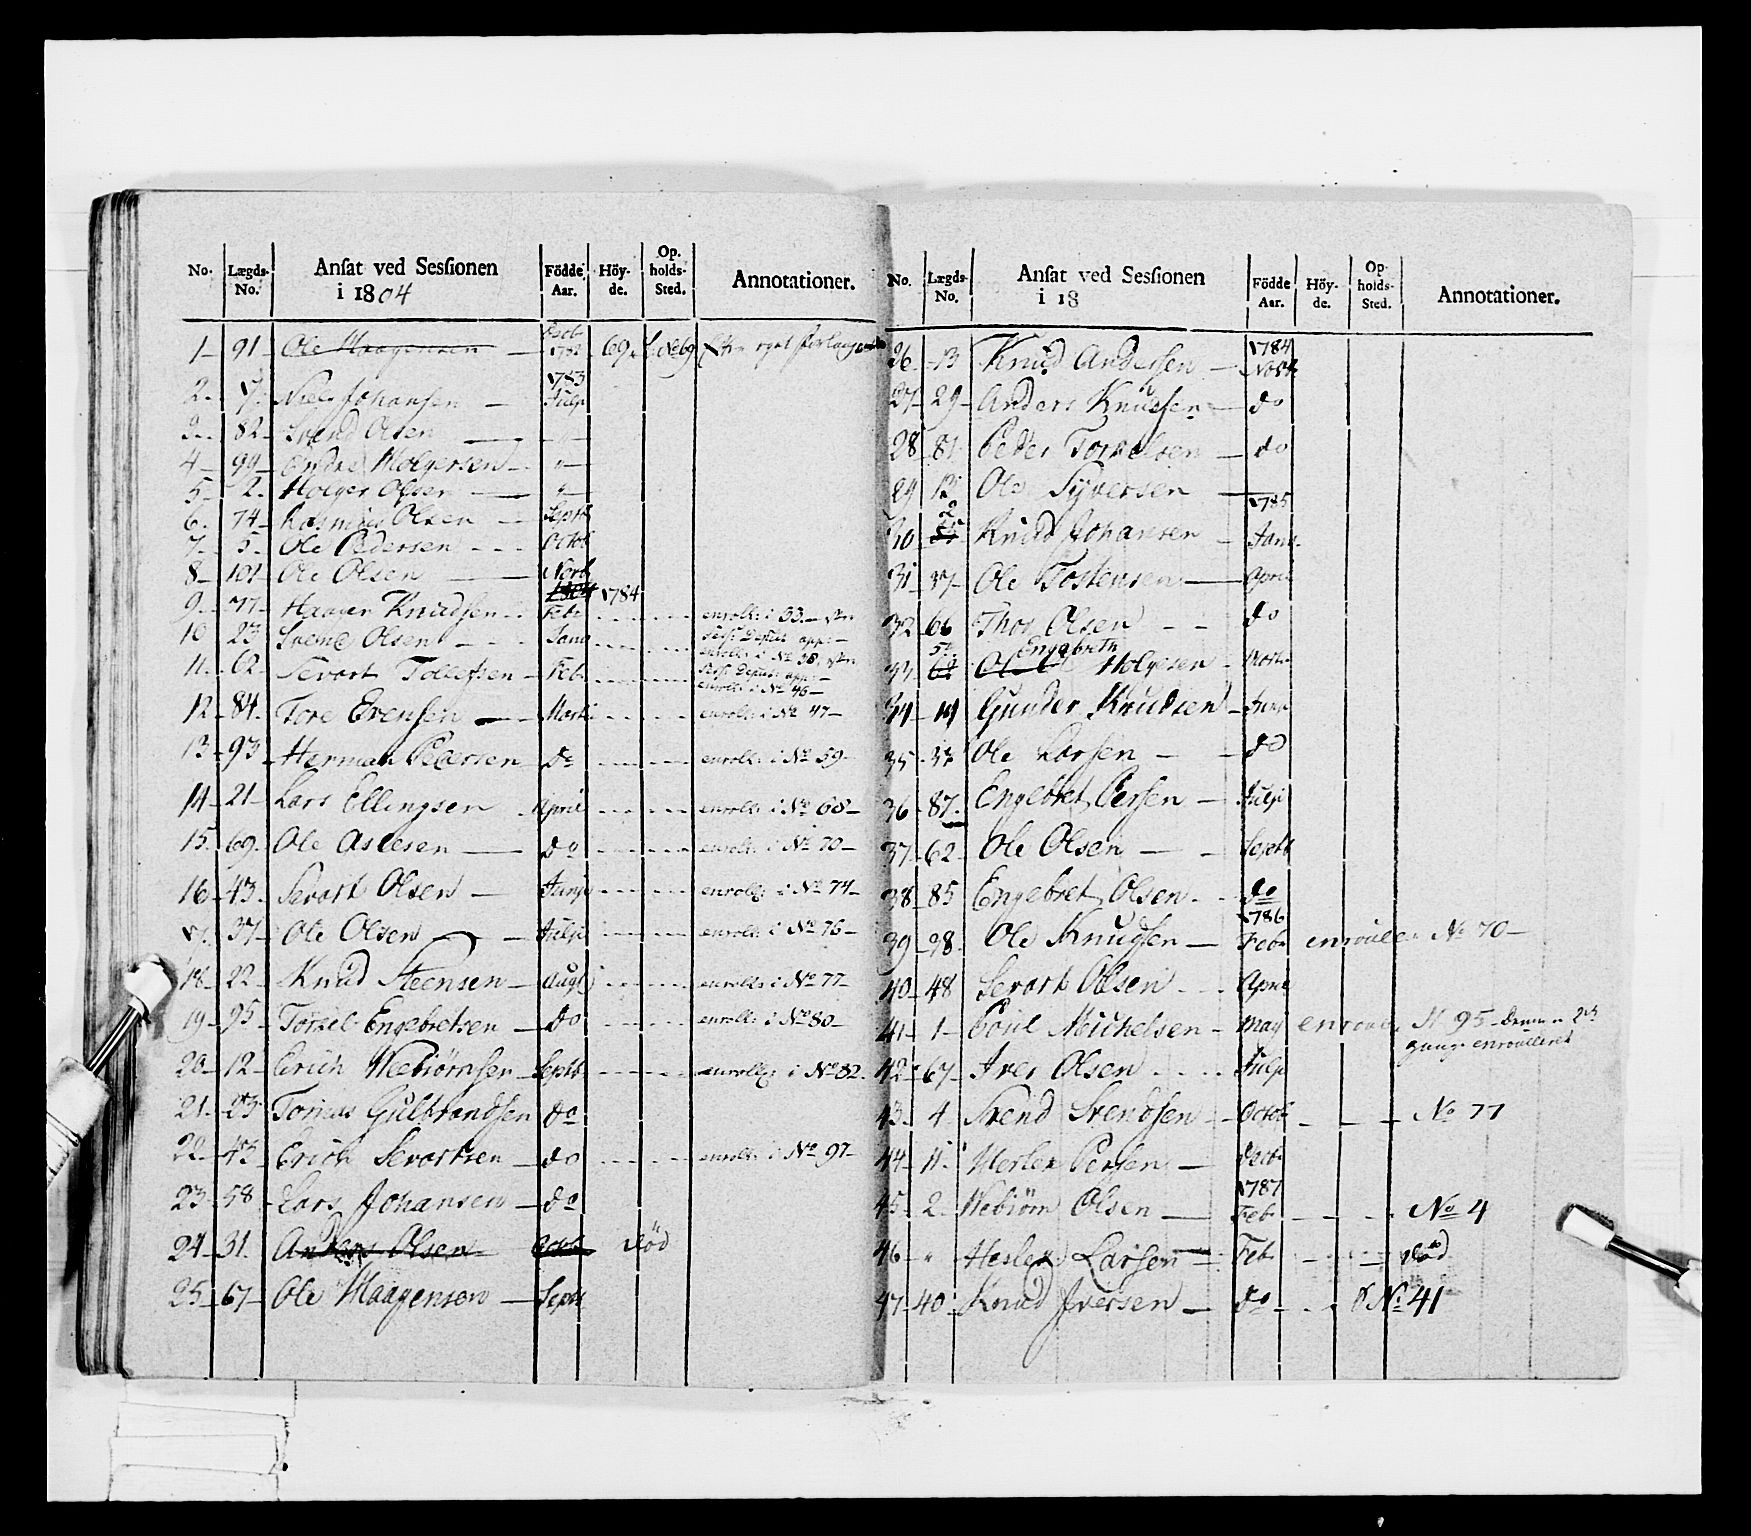 No. Lægds-No. Ansat ved Sessionen i 1804 Födde Aar. Höy-de. Op-holds-Sted. Annotationer.
1 91 Ole Haagensen Octb 1782 69 No 69
2. Niels Johansen 1783 Julj
3 82 Svend Olsen "
4 99 Holgersen "
5 2. Holger Olsen "
6. 74 Rasmus Olsen Septb
7. 5 Ole Pedersen Octob
8 101 Ole Olsen Novb
9 77 Haagen Knudsen 1784 Feb enroll: i 33.
10 23 Svend Olsen Janu enroll: i No 38.
11. 62 Sevort Tollefsen Feb enroll: i No 46
12 84. Tore Evensen Marti enroll: i No 47
13 93 Herman Pedersen do enroll: i No 59
14 21 Lars Ellingsen April enroll: i No 68
15. 69. Ole Aslesen do enroll: i No 70
16 43. Sevort Olsen Junj enroll: i No 74
17. 37 Ole Olsen Julj enroll: i No 76
18 22 Knud Steensen Augt enroll: i No 77
19 95 Torkel Engebretsen do enroll: i No 80
20 12 Erich Webiörnsen Septb enroll: i No 82.
21. 23 Tomas Gulbrandsen do
22 43 Erich Sevortsen do enroll: i No 97
23. 58 Lars Johansen do
24 31. Anders Olsen Octob död
25 67 Ole Haagensen Septb
No. Lægds-No. Ansat ved Sessionen i 18 Födde Aar. Höy-de. Op-holds-Sted. Annotationer.
26 13 Knud Andersen 1784 Novb
27 29 Anders Knudsen do
28 81 Peder Torkelsen do
29 13 Ole Syversen
30 2 Knud Johansen 1785 Janu
31 37 Ole Tostensen April
32 66 Thor Olsen do
33 Engebreth Holgersen
34 14 Gunder Knudsen Junj
35 37 Ole Larsen do
36 87. Engebret Persen Julj
37 62 Ole Olsen Septb
38 85 Engebret Olsen do
39 28 Ole Knudsen 1786 Feb enroulle No 70
40 48 Sevort Olsen April
41 1 Poul Michelsen May enroul N 95
gang enroulleret
42 67 Iver Olsen Julj
43. 4 Svend Svendsen Octob No 77
44 11. Persen Decb
45 2. Webiörn Olsen 1787 Feb No 4
46 " Larsen Feb död
47 40 Knud Iversen do No 41